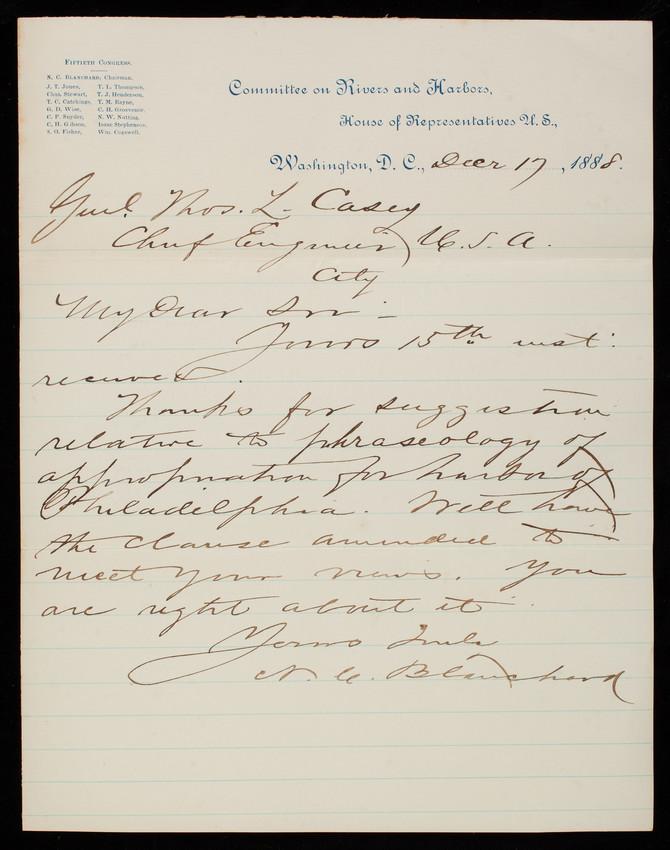 FIFTIETH CONGRESS.
N. C. BLANCHARD, Chairman.
J. T. Jones, T. L. Thompson,
Chas. Stewart, T. J. Henderson,
T. C. Catchings, T. M. Bayne,
G. D. Wise, C. H. Grosvenor,
C. P. Snyder, N. W. Nutting,
C. H. Gibson, Isaac Stephenson,
S. O. Fisher, Wm. Cogswell.
Committee on Rivers and Harbors,
House of Representatives U. S.,
Washington, D. C., Decr 17, 1888.
Genl. Thos. L. Casey
Chief Engineer, U. S. A.
City
My Dear Sir –
Yours 15th inst.
received.
Thanks for suggestion
relative to phraseology of
appropriation for harbor of
Philadelphia. Will have
the clause amended to
meet your views. You
are right about it.
Yours Truly
N. C. Blanchard